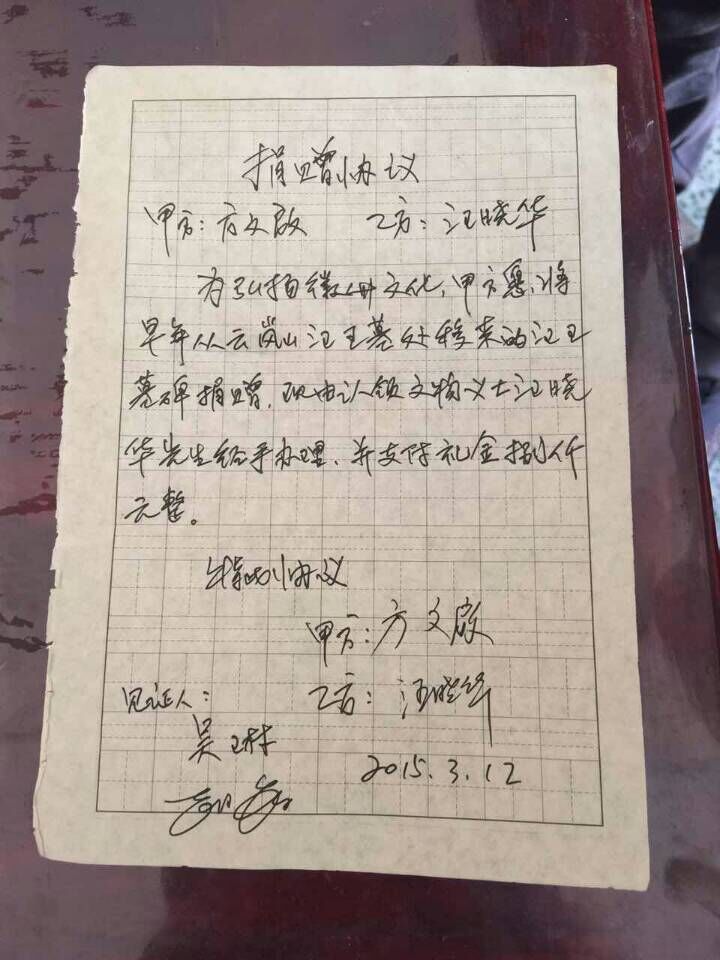 捐赠协议
甲方：方文啟 乙方：汪晓华
为弘扬徽州文化，甲方愿将
早年从云岚山汪王墓处移来的汪王
墓碑捐赠，现由认领文物义士汪晓
华先生经手办理，并支付礼金捌仟
元整。
特此协议
甲方：方文啟
见证人： 乙方：汪晓华
吴玉林
2015.3.12